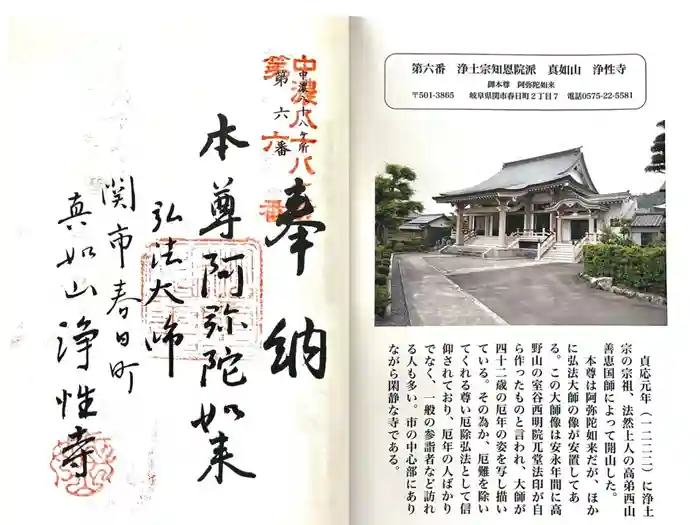 中濃八十八ケ所
第六番
中濃八十八ケ所
第六番
奉納
本尊阿弥陀如来
弘法大師
関市春日町
真如山浄性寺
第六番　浄土宗知恩院派　真如山　浄性寺
御本尊　阿弥陀如来
〒501-3865　岐阜県関市春日町２丁目７　電話0575-22-5581
貞応元年（一二二二）に浄土
宗の宗祖、法然上人の高弟西山
善恵国師によって開山した。
本尊は阿弥陀如来だが、ほか
に弘法大師の像が安置してあ
る。この大師像は安永年間に高
野山の室谷西明院兀堂法印が自
ら作ったものと言われ、大師が
四十二歳の厄年の姿を写し描い
ている。その為か、厄難を除い
てくれる尊い厄除弘法として信
仰されており、厄年の人ばかり
でなく、一般の参詣者など訪れ
る人も多い。市の中心部にあり
ながら閑静な寺である。